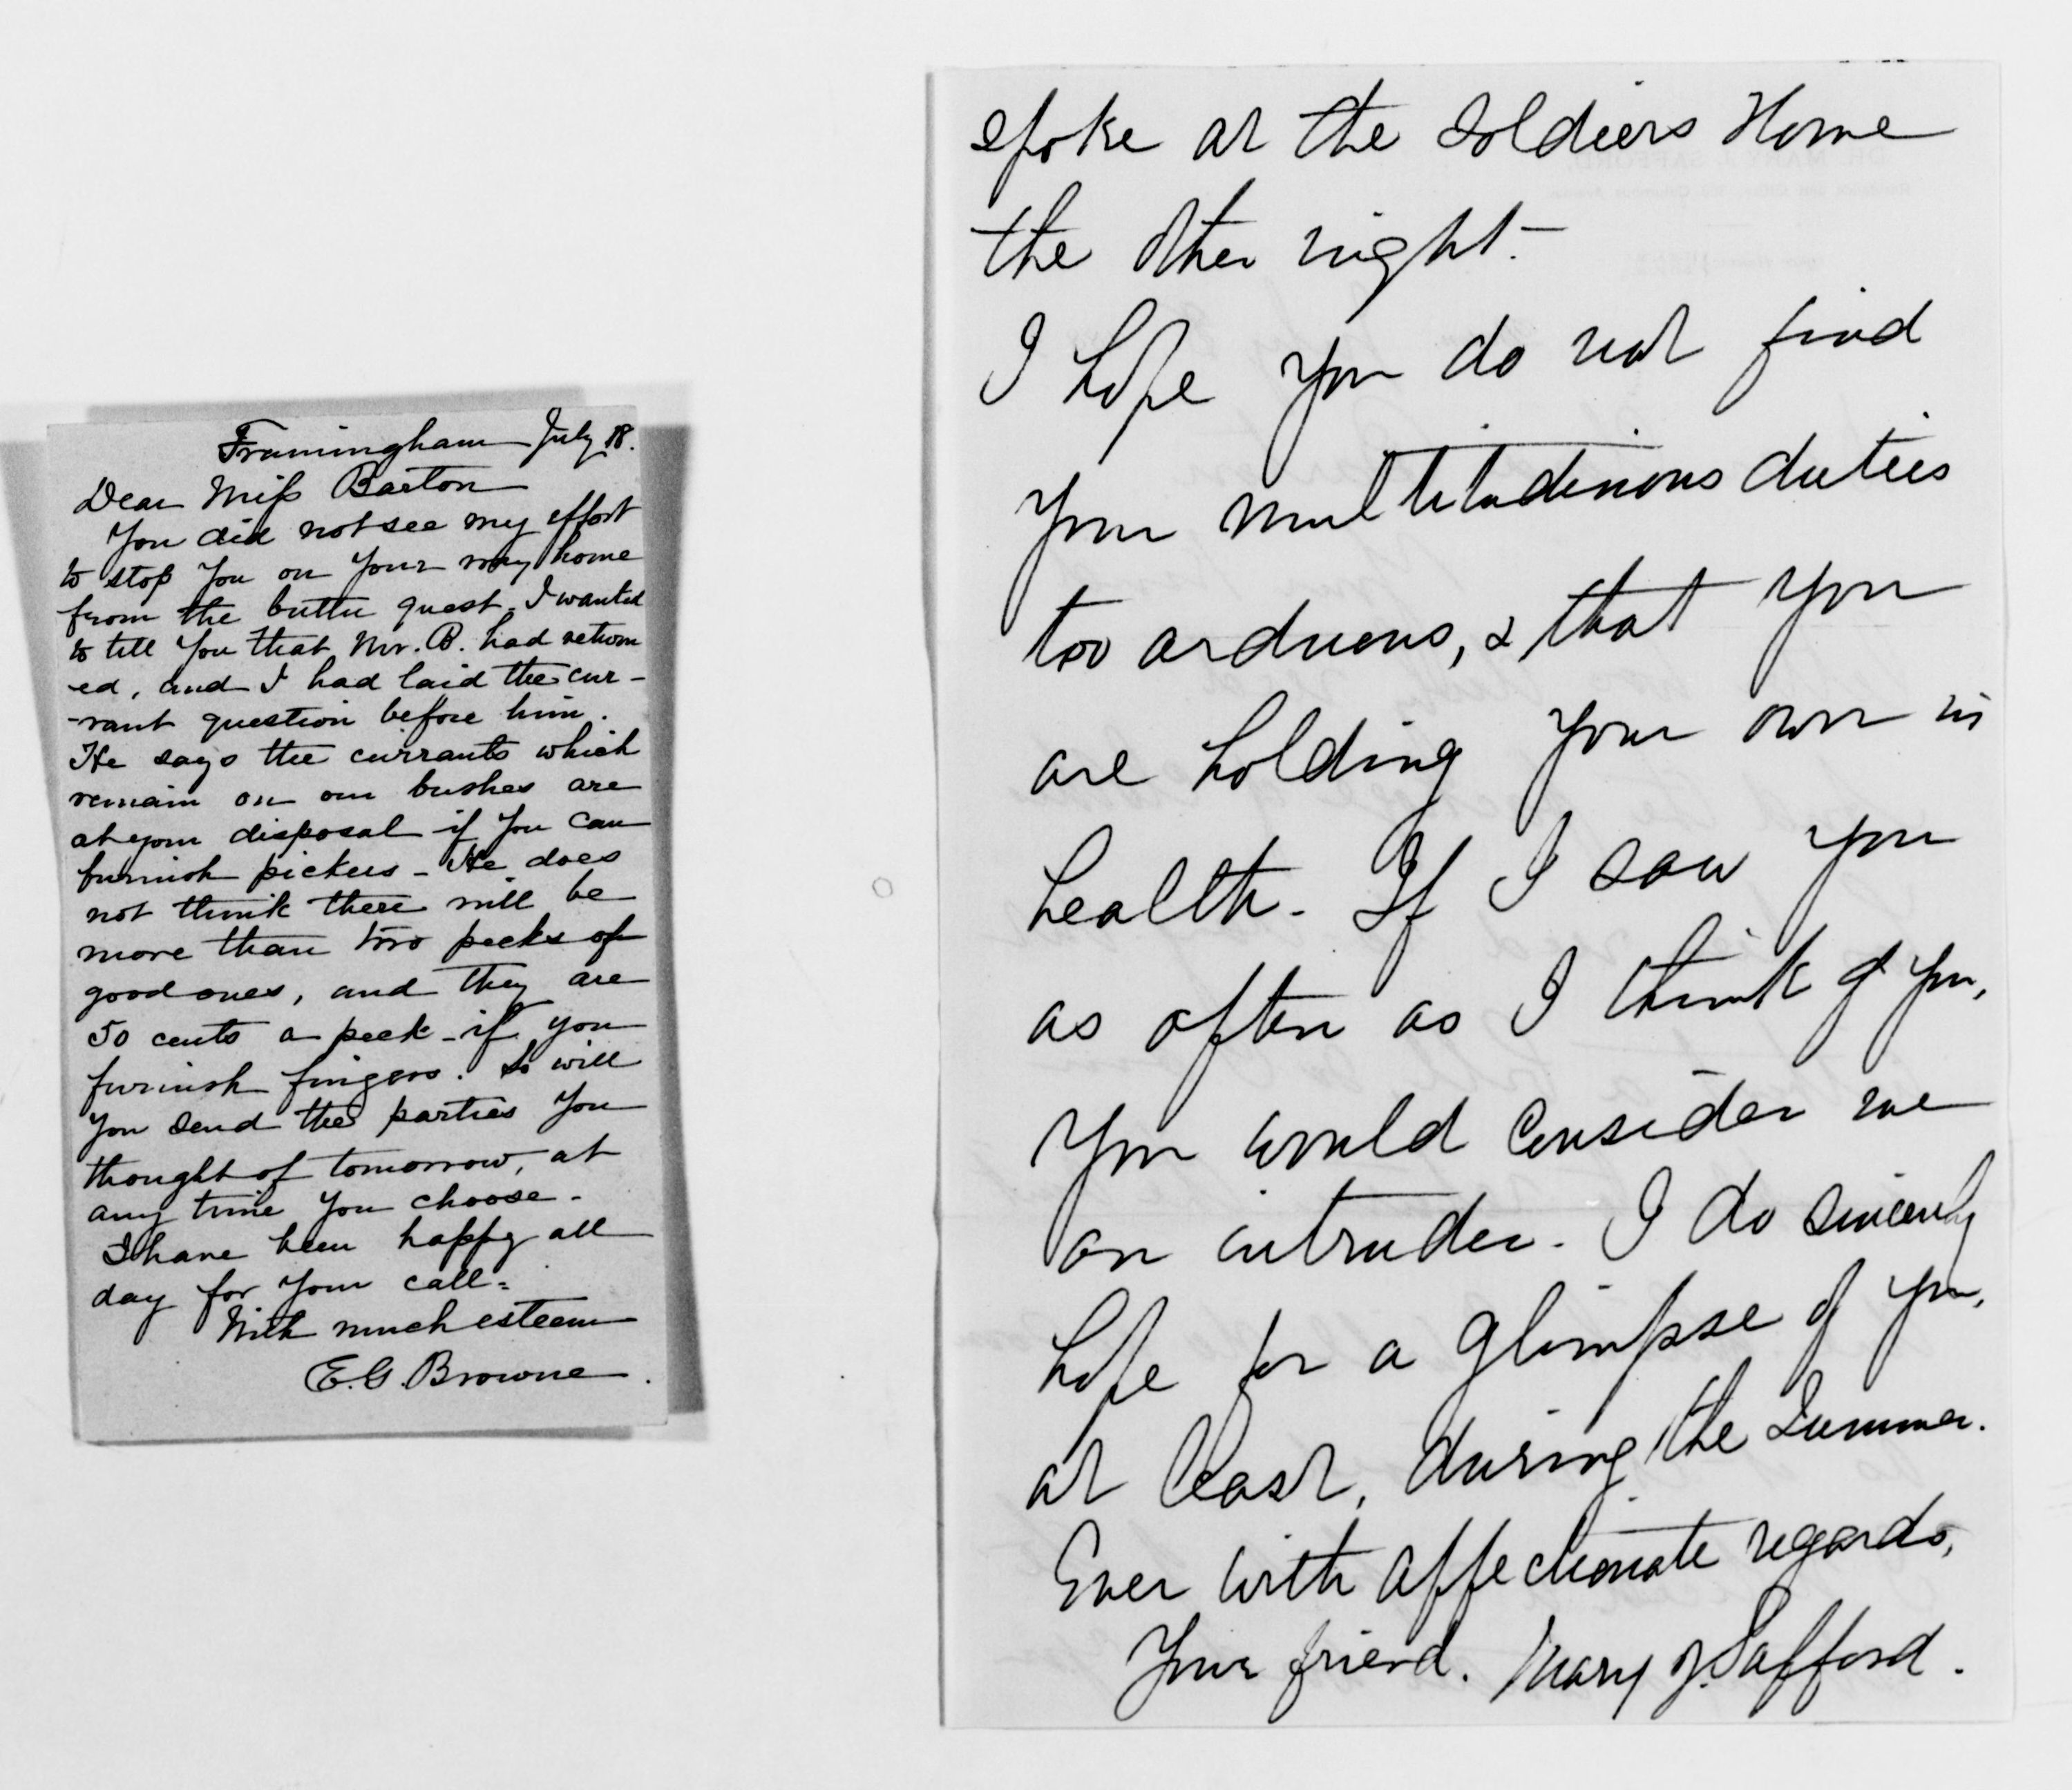 Framingham July 18.
Dear Miss Barton
You did not see my effort
to stop you on your way home
from the butter quest. I wanted
to tell you that Mr. B. had return
-ed, and I had laid the cur-
-rant question before him.
He says the currants which
remain on our bushes are
at your disposal if you can
furnish pickers - He does
not think there will be
more than two pecks of
good ones, and they are
50 cents a peck - if you
furnish fingers. So will
you send the parties you
thought of tomorrow, at
any time you choose.
I have been happy all
day for your call.
With much esteem
E. G. Browne.
spoke at the Soldiers Home
the other night.
I hope you do not find
your multitudinous duties
too arduous, & that you
are holding your own in
health. If I saw you
as often as I think of you,
you would consider me
an intruder. I do sincerely
hope for a glimpse of you,
at least, during the Summer.
Ever with affectionate regards,
Your friend. Mary J. Safford.